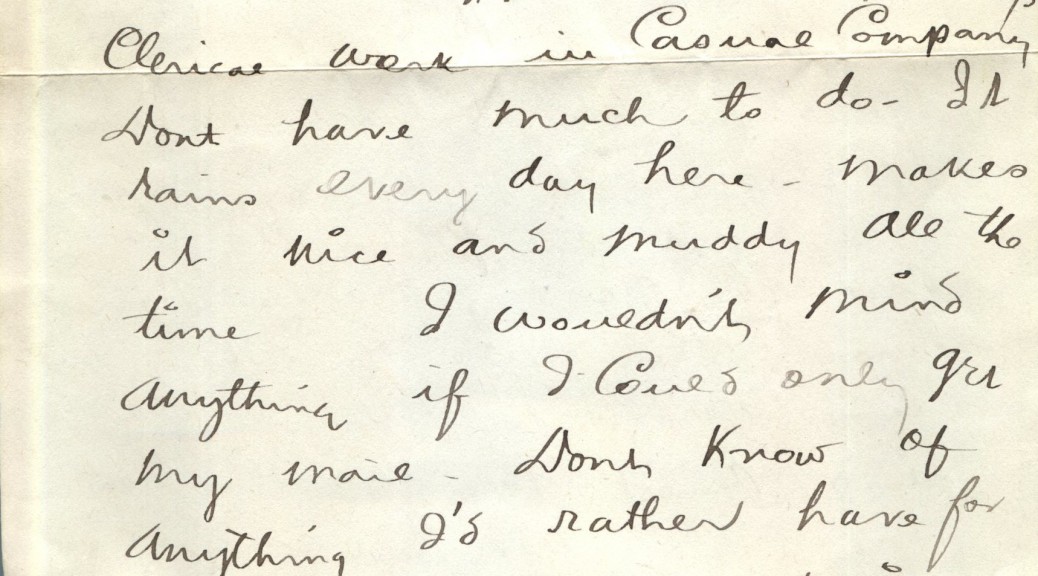 Clerical work in Casual Company
Dont have much to do - It
rains every day here - makes
it nice and muddy all the
time I wouldn't mind
anything if I could only get
my mail - Dont know of
anything I'd rather have for